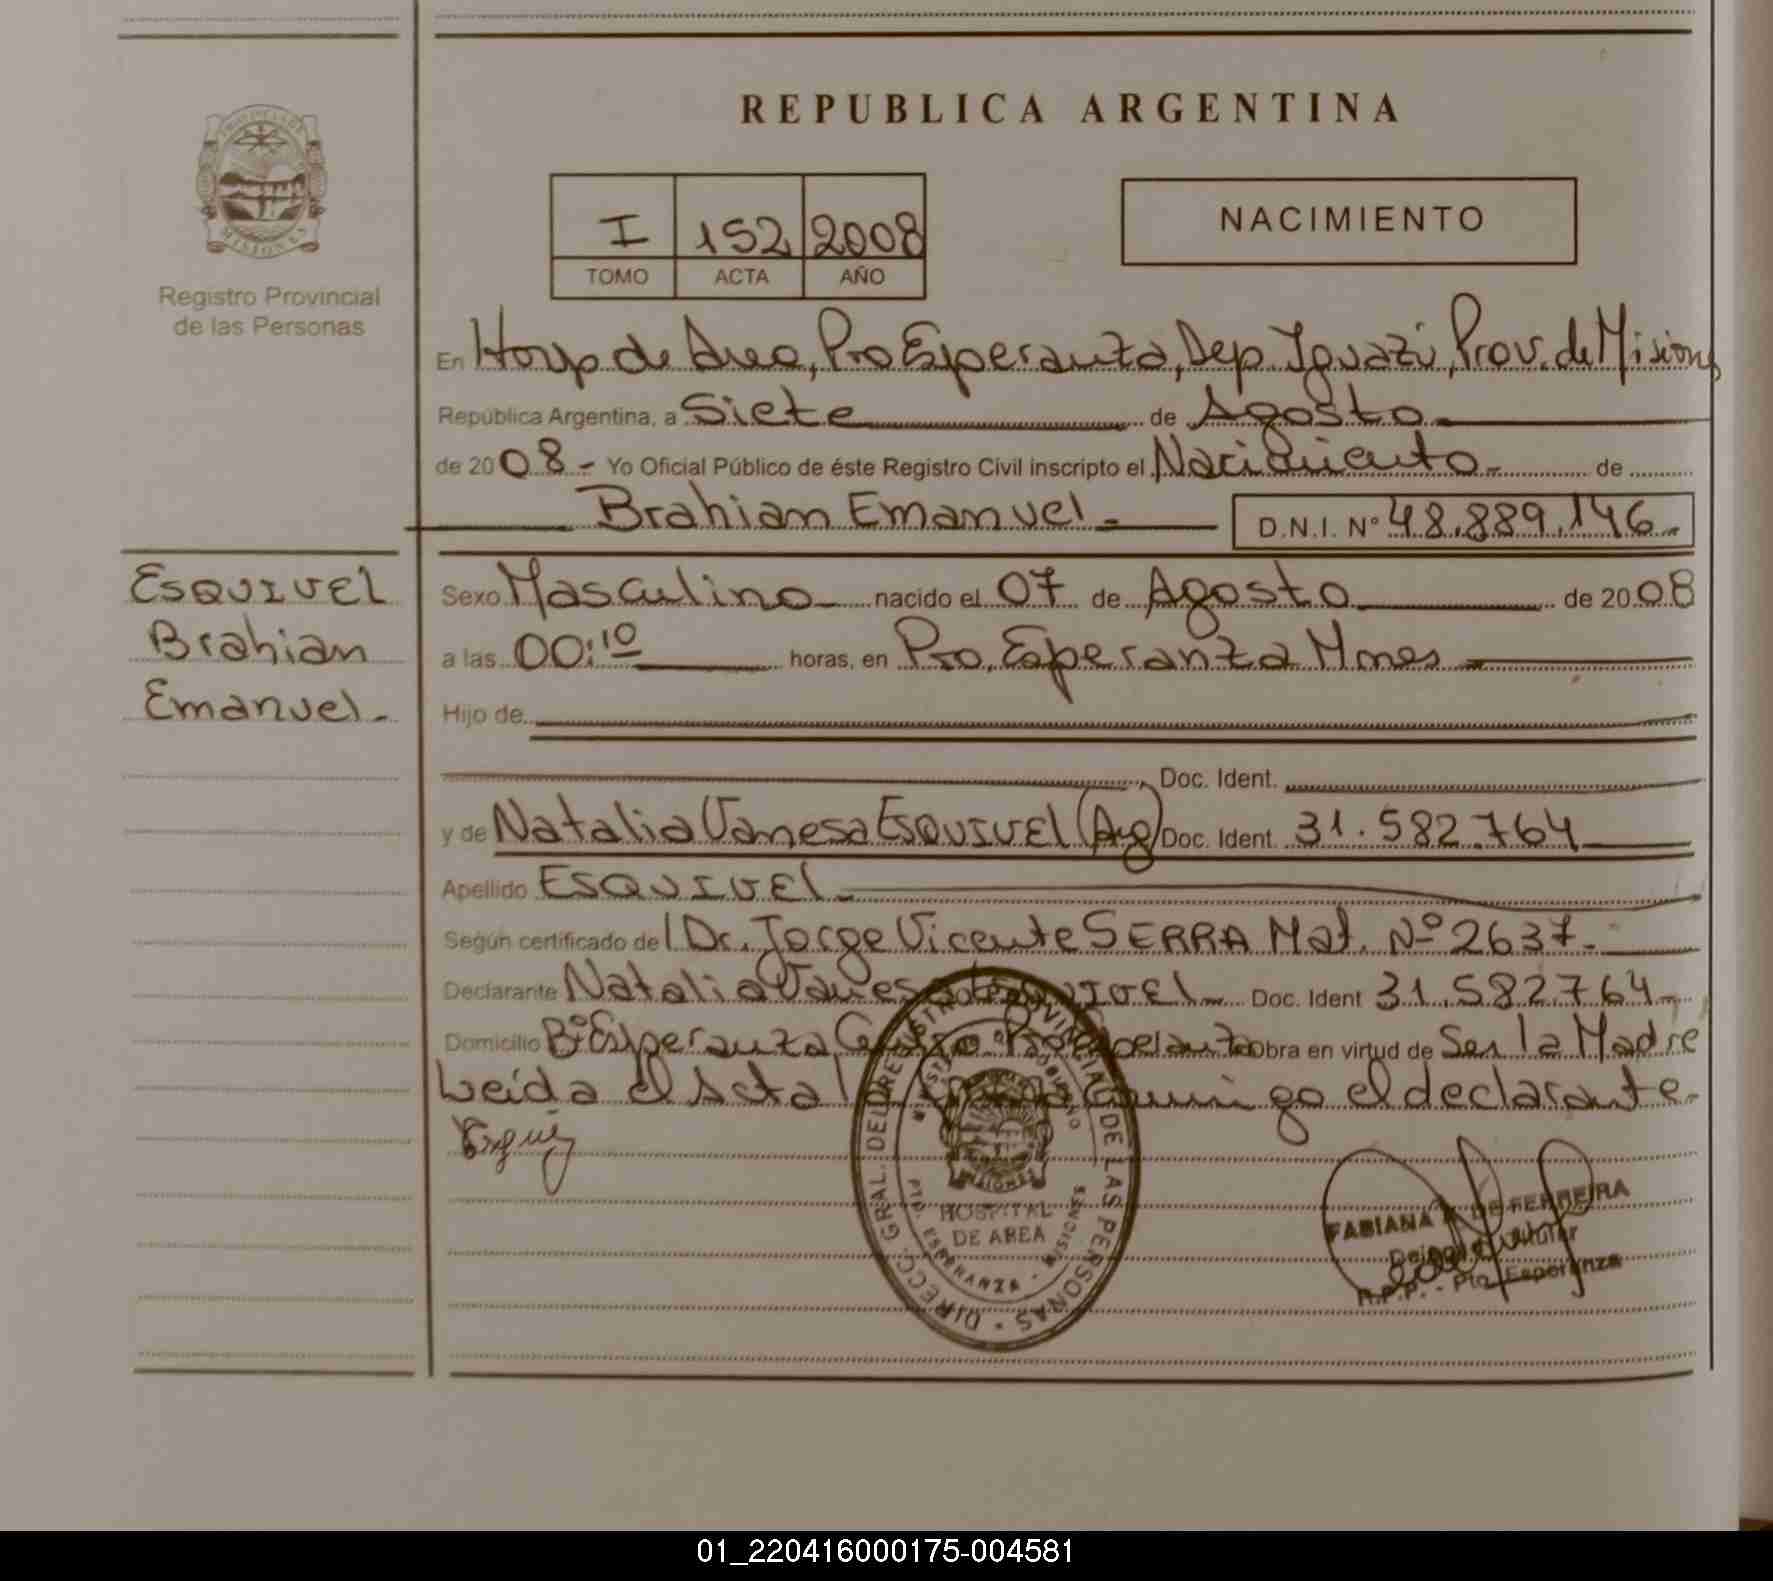 REPUBLICA ARGENTINA
I 152 2008
TOMO ACTA AÑO
NACIMIENTO
PROVINCIA DE
MISIONES
Registro Provincial
de las Personas
En Hosp de Area, Pto Esperanza, Dep. Iguazú, Prov. de Misiones
República Argentina, a Siete de Agosto
de 2008 - Yo Oficial Público de éste Registro Civil inscripto el Nacimiento de
Brahian Emanuel - D.N.I. Nº 48.889.146.-
ESQUIVEL
Brahian
Emanuel.-
Sexo Masculino nacido el 07 de Agosto de 2008
a las 00:10 horas, en Pto. Esperanza Mnes
Hijo de
Doc. Ident.
y de Natalia Vanesa ESQUIVEL (Arg) Doc. Ident. 31.582.764
Apellido ESQUIVEL.-
Según certificado del Dr. Jorge Vicente SERRA Mat. Nº 2637.-
Declarante Natalia Vanesa Esquivel Doc. Ident 31.582764-
Domicilio Bº Esperanza Centro Pto Esperanza Obra en virtud de Ser la Madre
Leída el Acta la firma conmigo el declarante.
DIRECC. GRAL. DEL REGISTRO PROVINCIAL DE LAS PERSONAS
MINISTERIO DE GOBIERNO
MISIONES
HOSPITAL
DE AREA
PTO. ESPERANZA - MISIONES
FABIANA DE FERREIRA
Titular
R.P.P. - Pto. Esperanza
01_220416000175-004581